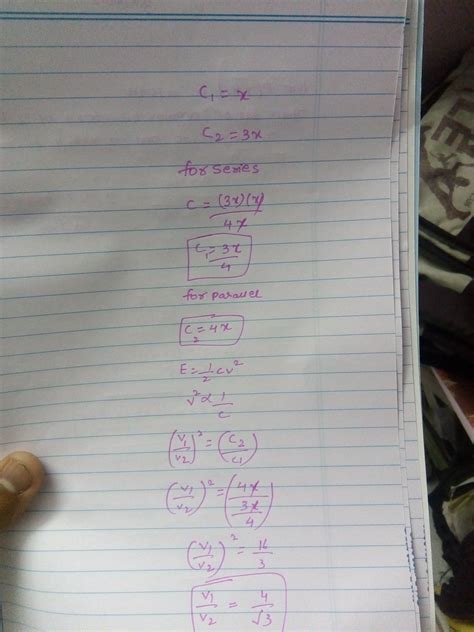 C₁ = x
C₂ = 3x
for series
C = (3x)(x) / 4x
C₁ = 3x / 4
for parallel
C₂ = 4x
E = 1/2 cv²
v² ∝ 1/c
(v₁/v₂)² = (C₂/C₁)
(v₁/v₂)² = (4x / (3x/4))
(v₁/v₂)² = 16/3
v₁/v₂ = 4/√3